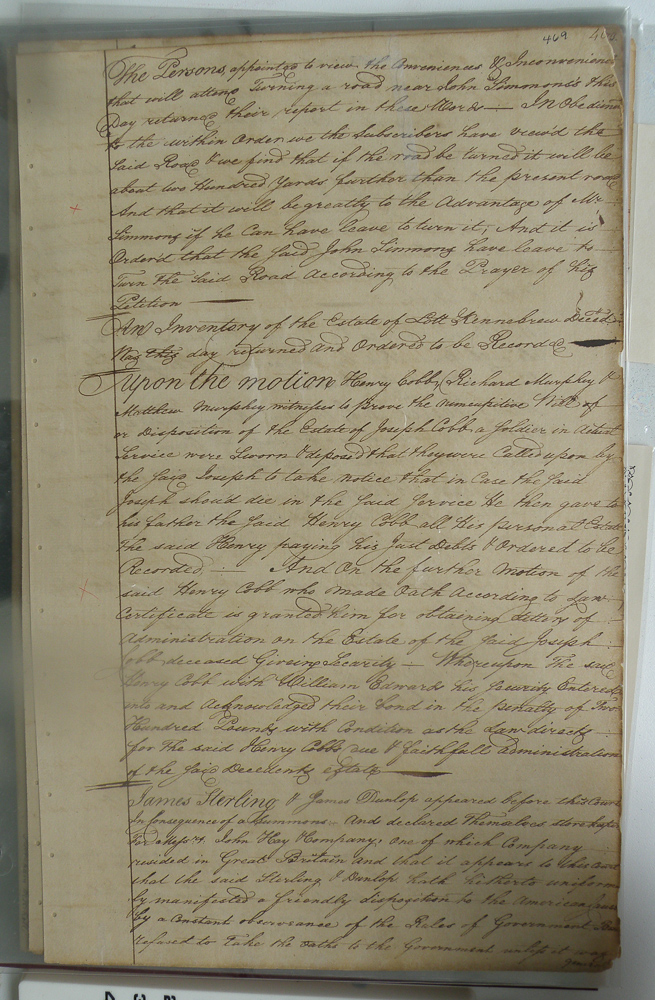 469
The Persons appointed to view the Conveniences & Inconveniences
that will attend Turning a road near John Simmons's this
Day returned their report in these Words — In Obedience
to the within Order we the Subscribers have view'd the
said Road & we find that if the road be turned it will be
about two Hundred Yards further than the present road
And that it will be greatly to the Advantage of Mr
Simmons if he Can have leave to turn it, And it is
Order'd that the said John Simmons have leave to
Turn the said Road According to the Prayer of his
Petition
An Inventory of the Estate of Lott Kennebrew Deced
Was this day returned and Ordered to be Recorded
Upon the motion Henry Cobb, Richard Murphey &
Matthew Murphey witnesses to prove the nuncupitive Will of
or Disposition of the Estate of Joseph Cobb a soldier in Actual
Service were Sworn & deposed that they were Called upon by
the said Joseph to take notice that in Case the said
Joseph should die in the said Service He then gave to
his father the said Henry Cobb all his personal Estate
The said Henry paying his Just Debts & Ordered to be
Recorded — And On the further Motion of the
said Henry Cobb who made Oath According to Law
Certificate is granted him for obtaining letters of
Administration on the Estate of the said Joseph
Cobb deceased Giveing Security — Whereupon The said
Henry Cobb with William Edwards his Security Entered
into and Acknowledged their bond in the Penalty of Two
Hundred Pounds with Condition as the Law directs
for The said Henry Cobbs due & faithfull administration
of the said Decedents estate
James Sterling & James Dunlop appeared before this Court
In Consequence of a Summons And declared themselves storekeepers
for John Hay & Company, one of which Company
resided in Great Britain and that it appears to this Court
that the said Sterling & Dunlop hath hitherto uniform
ly manifested a friendly disposition to the American cause
by a Constant observance of the Rules of Government But
refused to Take the oaths to the Government unless it was